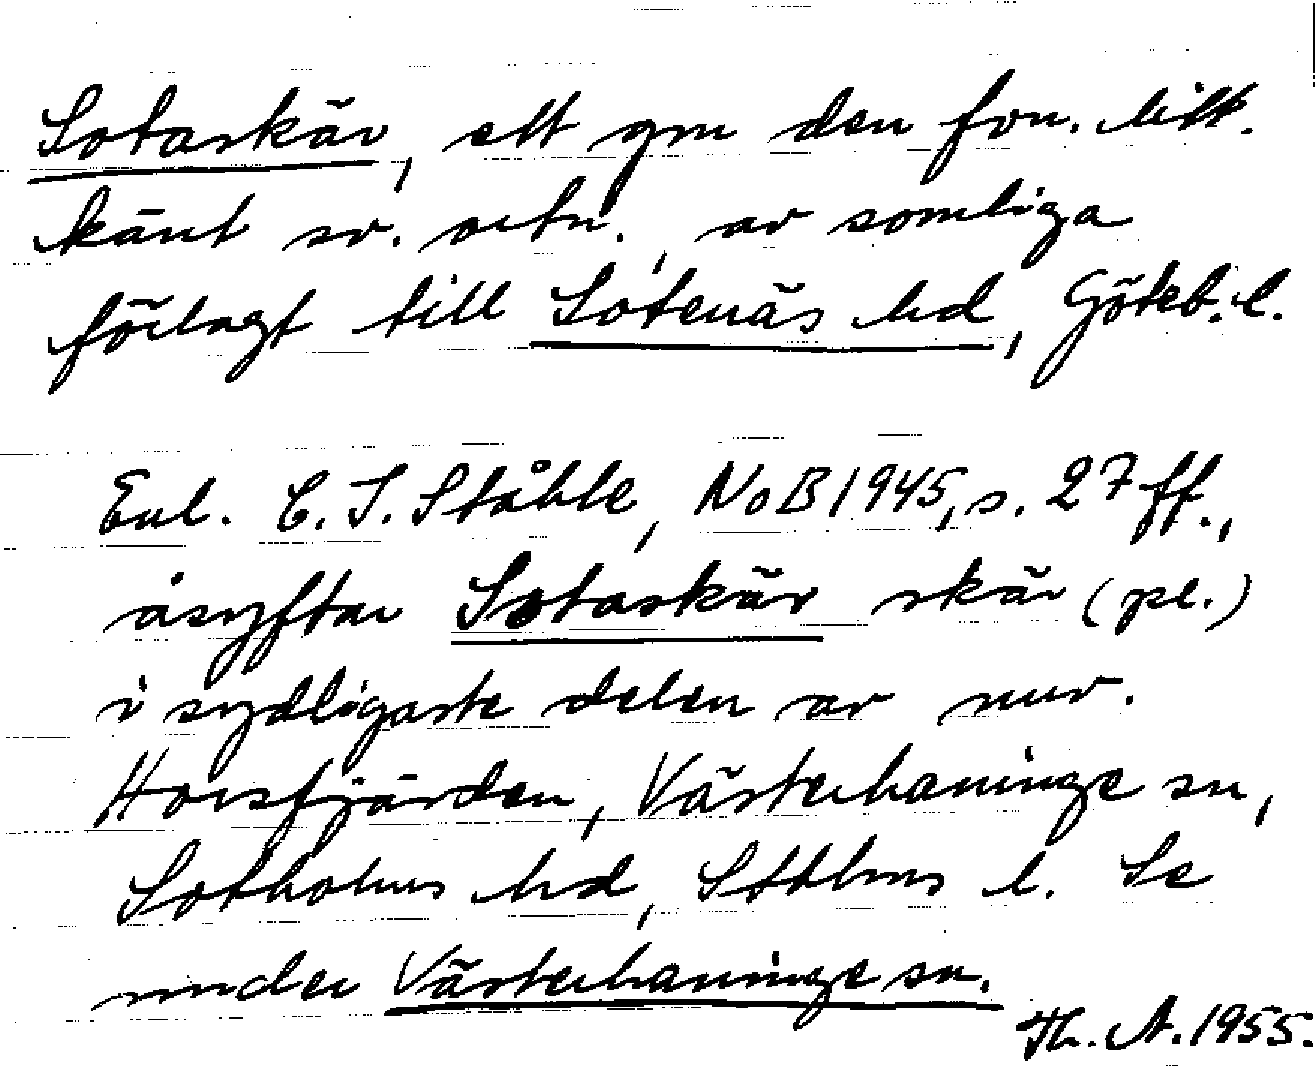 Sotaskär, ett gm den fvn. litt.
känt sv. ortn., av somliga
förlagt till Sotenäs hd, Göteb. l.
Enl. C. I. Ståhle, NoB 1945, s. 27 ff.,
åsyftar Sotaskär skär (pl.)
i sydligaste delen av nuv.
Horsfjärden, Västerhaninge sn,
Sotholms hd, Sthlms l. Se
under Västerhaninge sn.
Th. A. 1955.